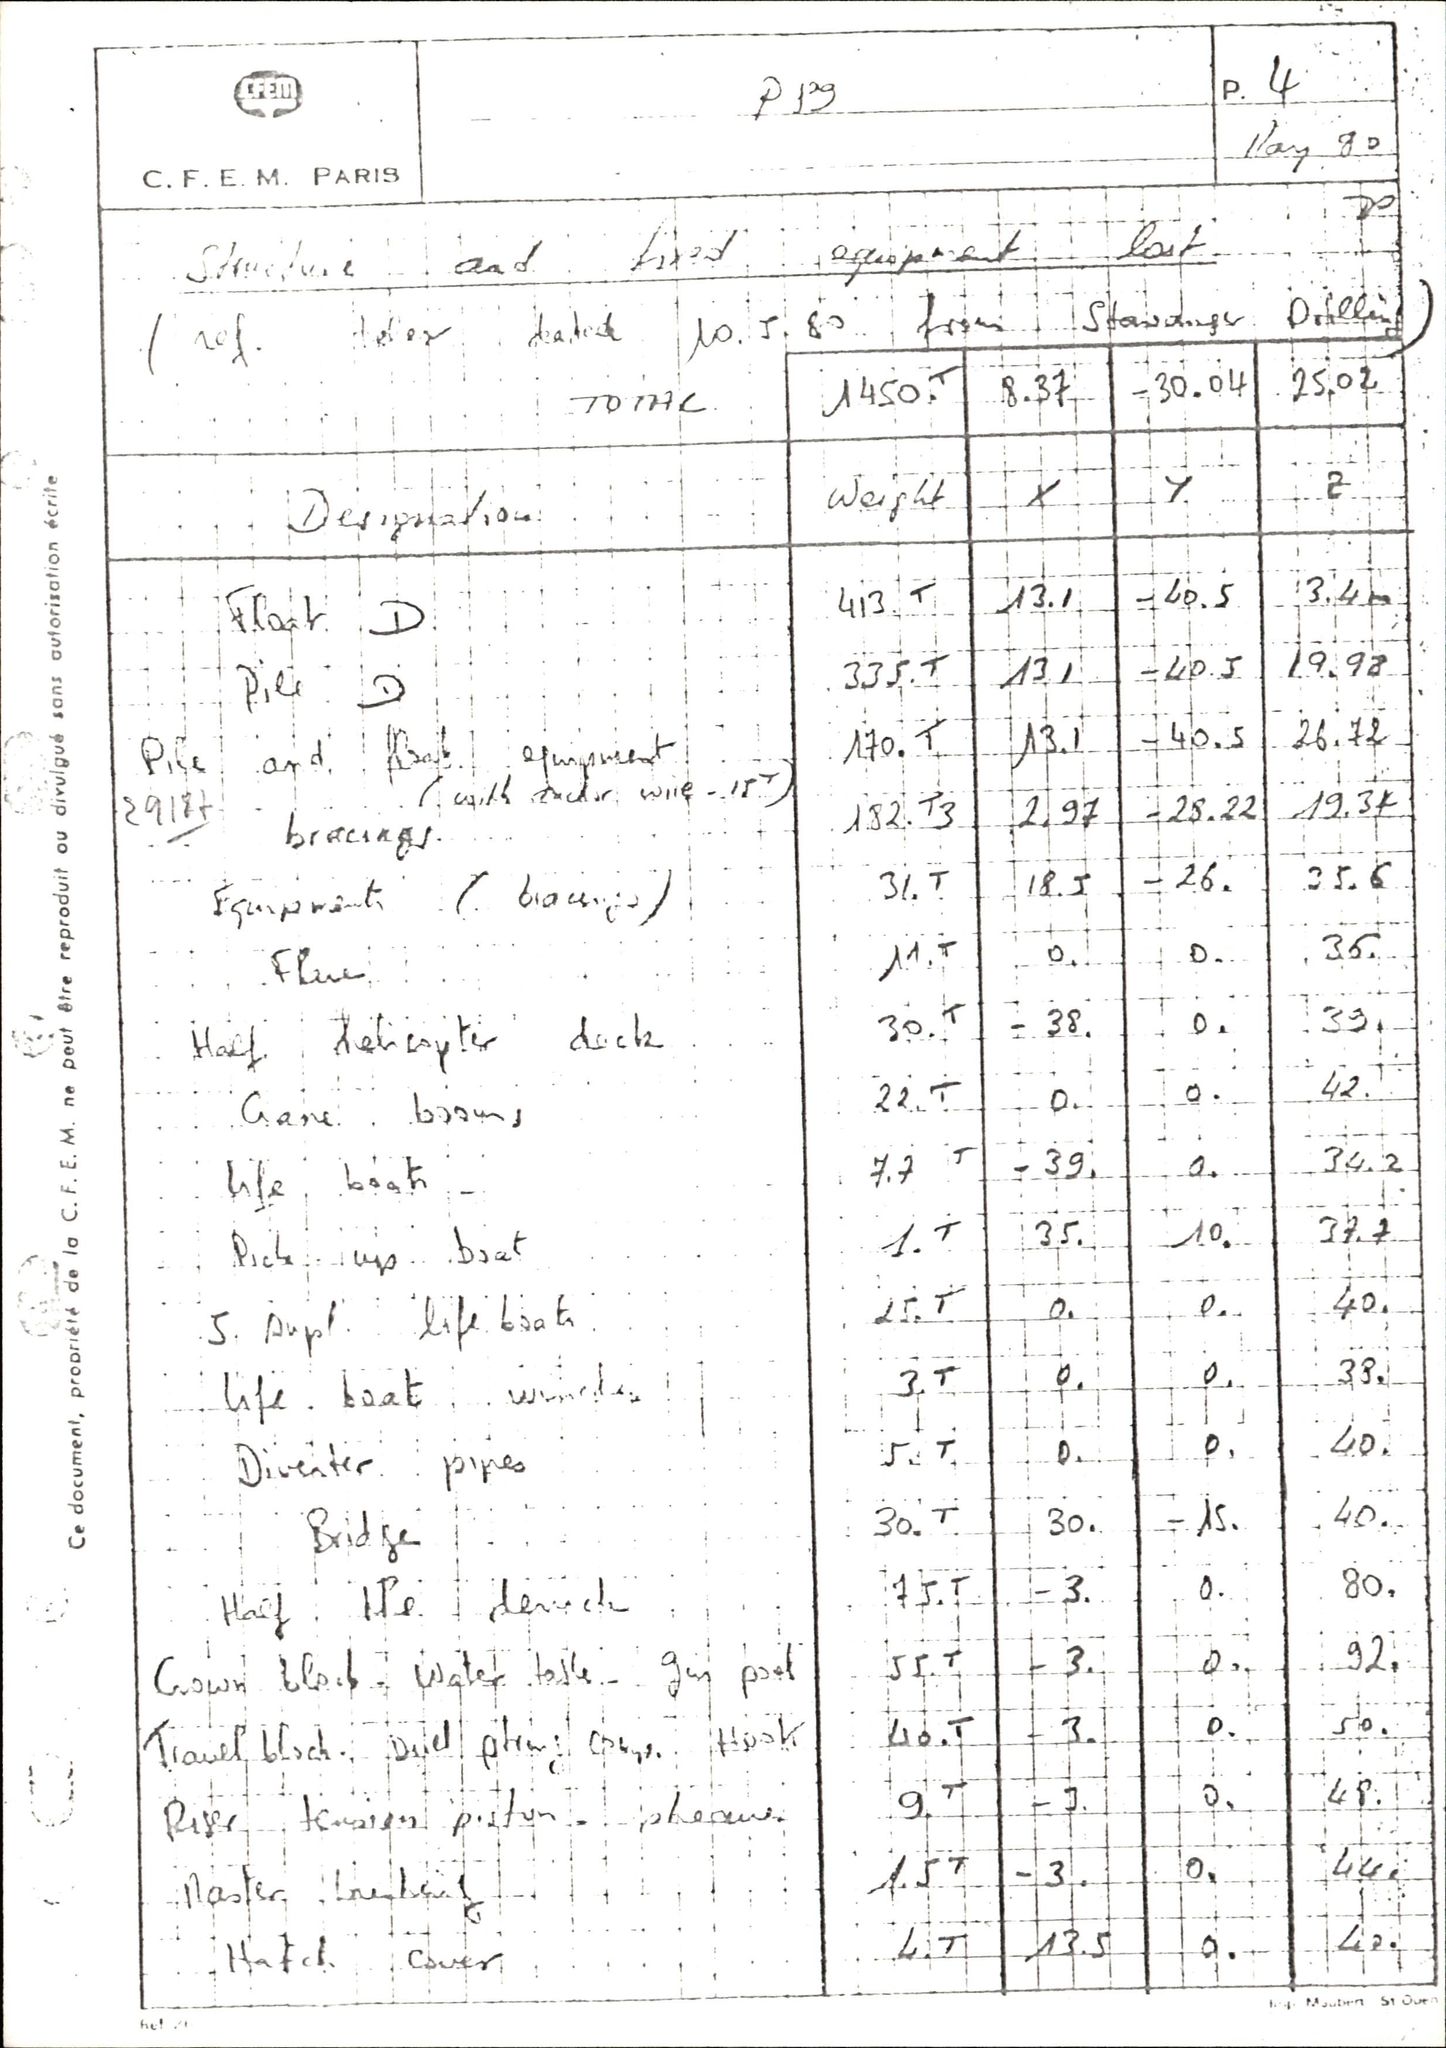 CFEM
C. F. E. M. PARIS
P 139
P. 4
May 80
Structure and fixed equipment lost
(ref. telex dated 10.5.80 from Stavanger Drilling)
TOTAL 1450.T 8.37 -30.04 25.02
Designation Weight X Y Z
Float D 413.T 13.1 -40.5 3.4
Pile D 335.T 13.1 -40.5 19.98
Pile and float equipment 170.T 13.1 -40.5 26.72
(with anchor wire - 15T)
bracings. 182.T3 2.97 -28.22 19.34
Equipments (bracings) 31.T 18.5 -26. 35.6
11.T 0. 0. 36.
Half helicopter deck 30.T -38. 0. 39.
Crane booms 22.T 0. 0. 42.
life boats - 7.7 T -39. 0. 34.2
Pick up boat 1.T 35. 10. 37.7
5. supl. life boats 25.T 0. 0. 40.
life boat winches 3.T 0. 0. 38.
Diverter pipes 5.T 0. 0. 40.
Bridge 30.T 30. -15. 40.
Half the derrick 75.T -3. 0. 80.
Crown block - Water table - Gin pool 55.T -3. 0. 92.
Travel block. Drill string comp. Hook 40.T -3. 0. 50.
Riser tension piston - sheaves 9.T -3. 0. 48.
Master bushing 1.5T -3. 0. 44.
Hatch cover 4.T 13.5 0. 40.
Ce document, propriété de la C. F. E. M. ne peut être reproduit ou divulgué sans autorisation écrite
Ref 21
Imp. Maubert St Ouen